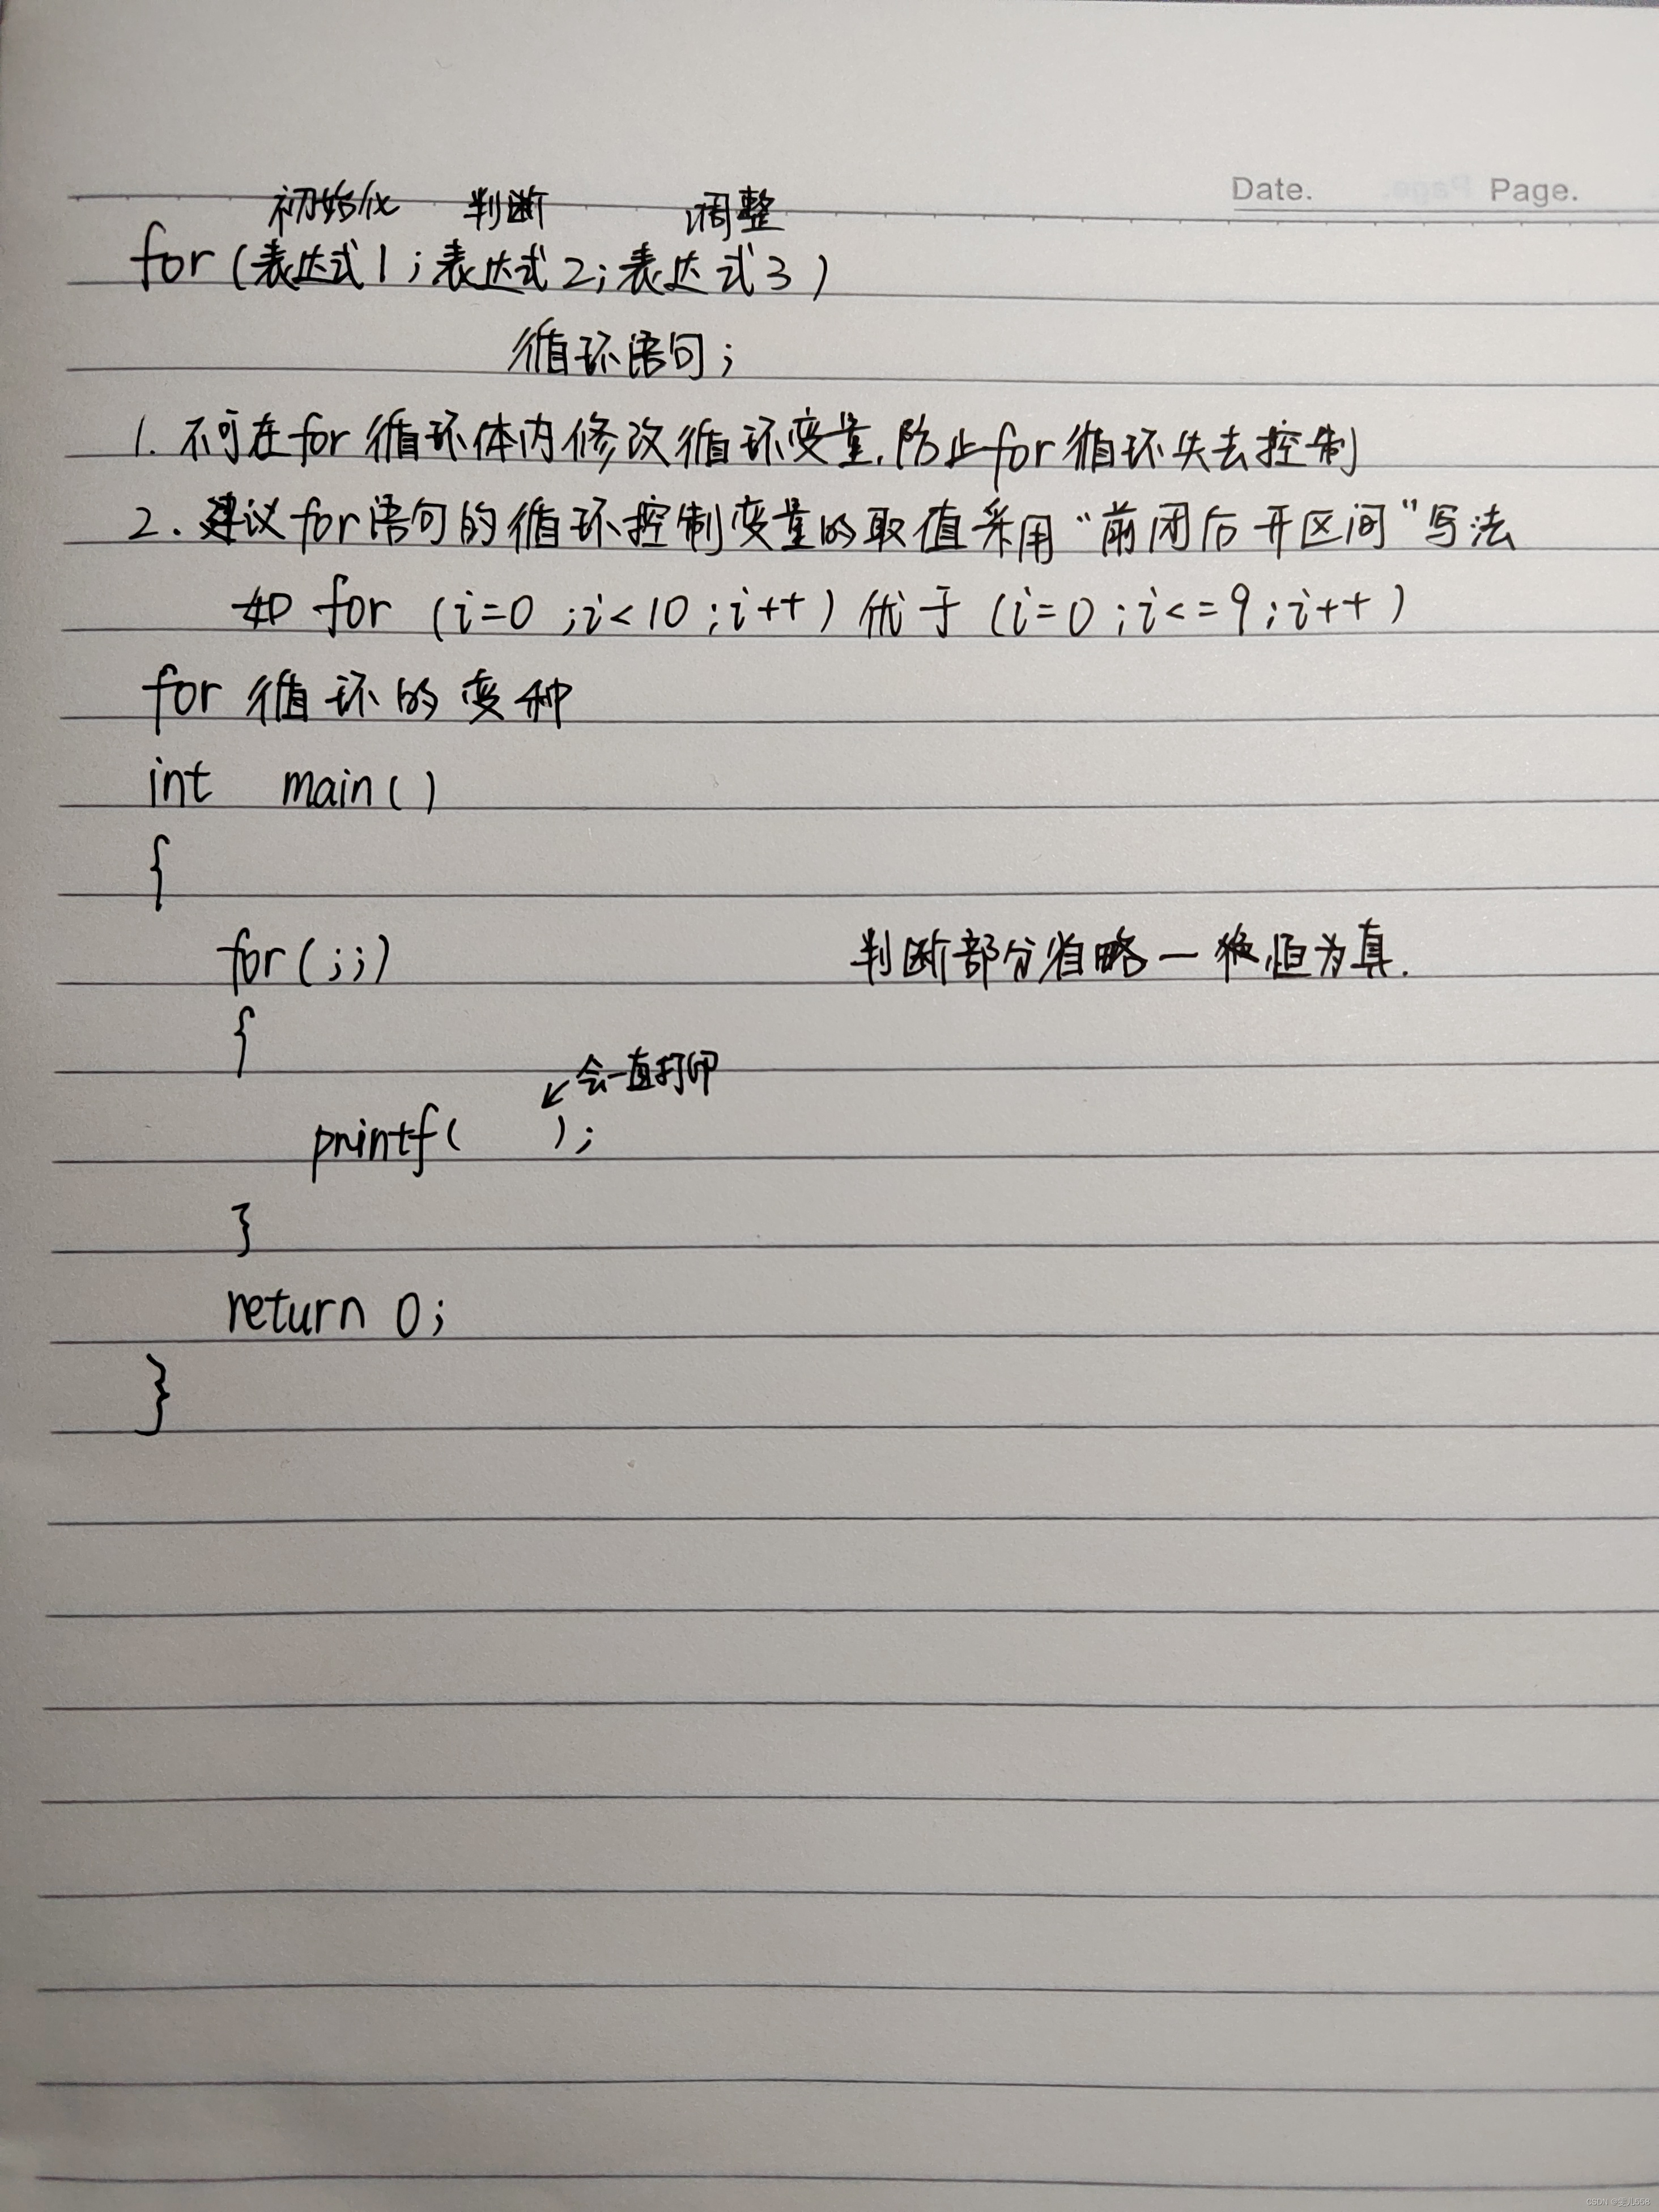 Date. Page.
初始化 判断 调整
for(表达式1;表达式2;表达式3)
循环语句;
1. 不可在for循环体内修改循环变量,防止for循环失去控制
2. 建议for语句的循环控制变量的取值采用“前闭后开区间”写法
如 for (i=0 ;i<10 ;i++) 优于 (i=0 ;i<=9 ;i++)
for 循环的变种
int main()
{
for(;;) 判断部分省略一恒为真.
{
会一直打印
printf( );
}
return 0;
}